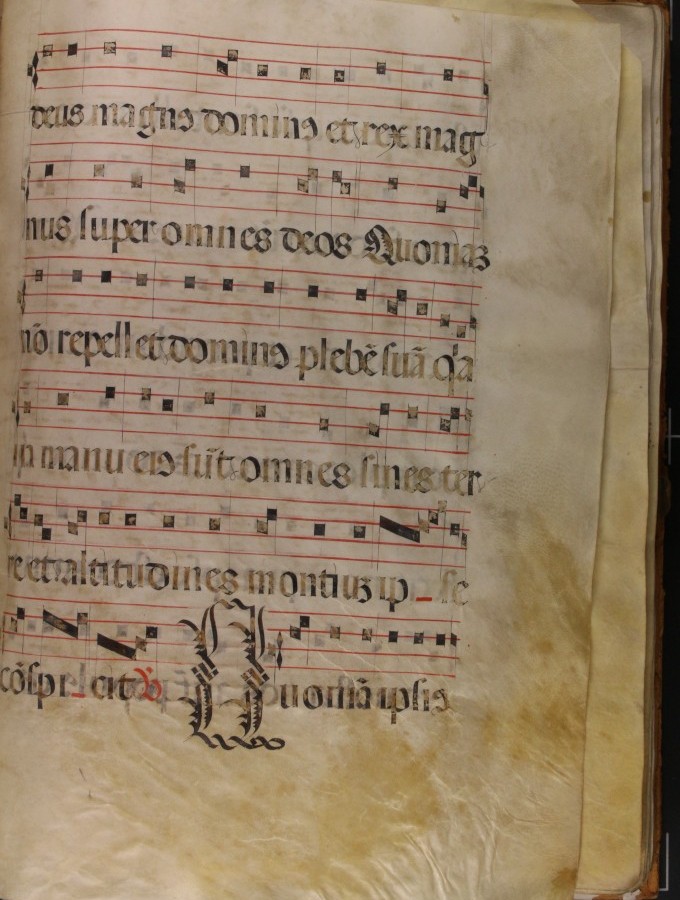 deus magnꝰ dominꝰ et rex mag
nus super omnes deos Quoniaꝫ
nō repellet dominꝰ plebē suā q̄a
in manu eiꝰ sūt omnes fines ter
re et altitudines montiuꝫ ip se
cōspi cit
Quoniā ipsiꝰ